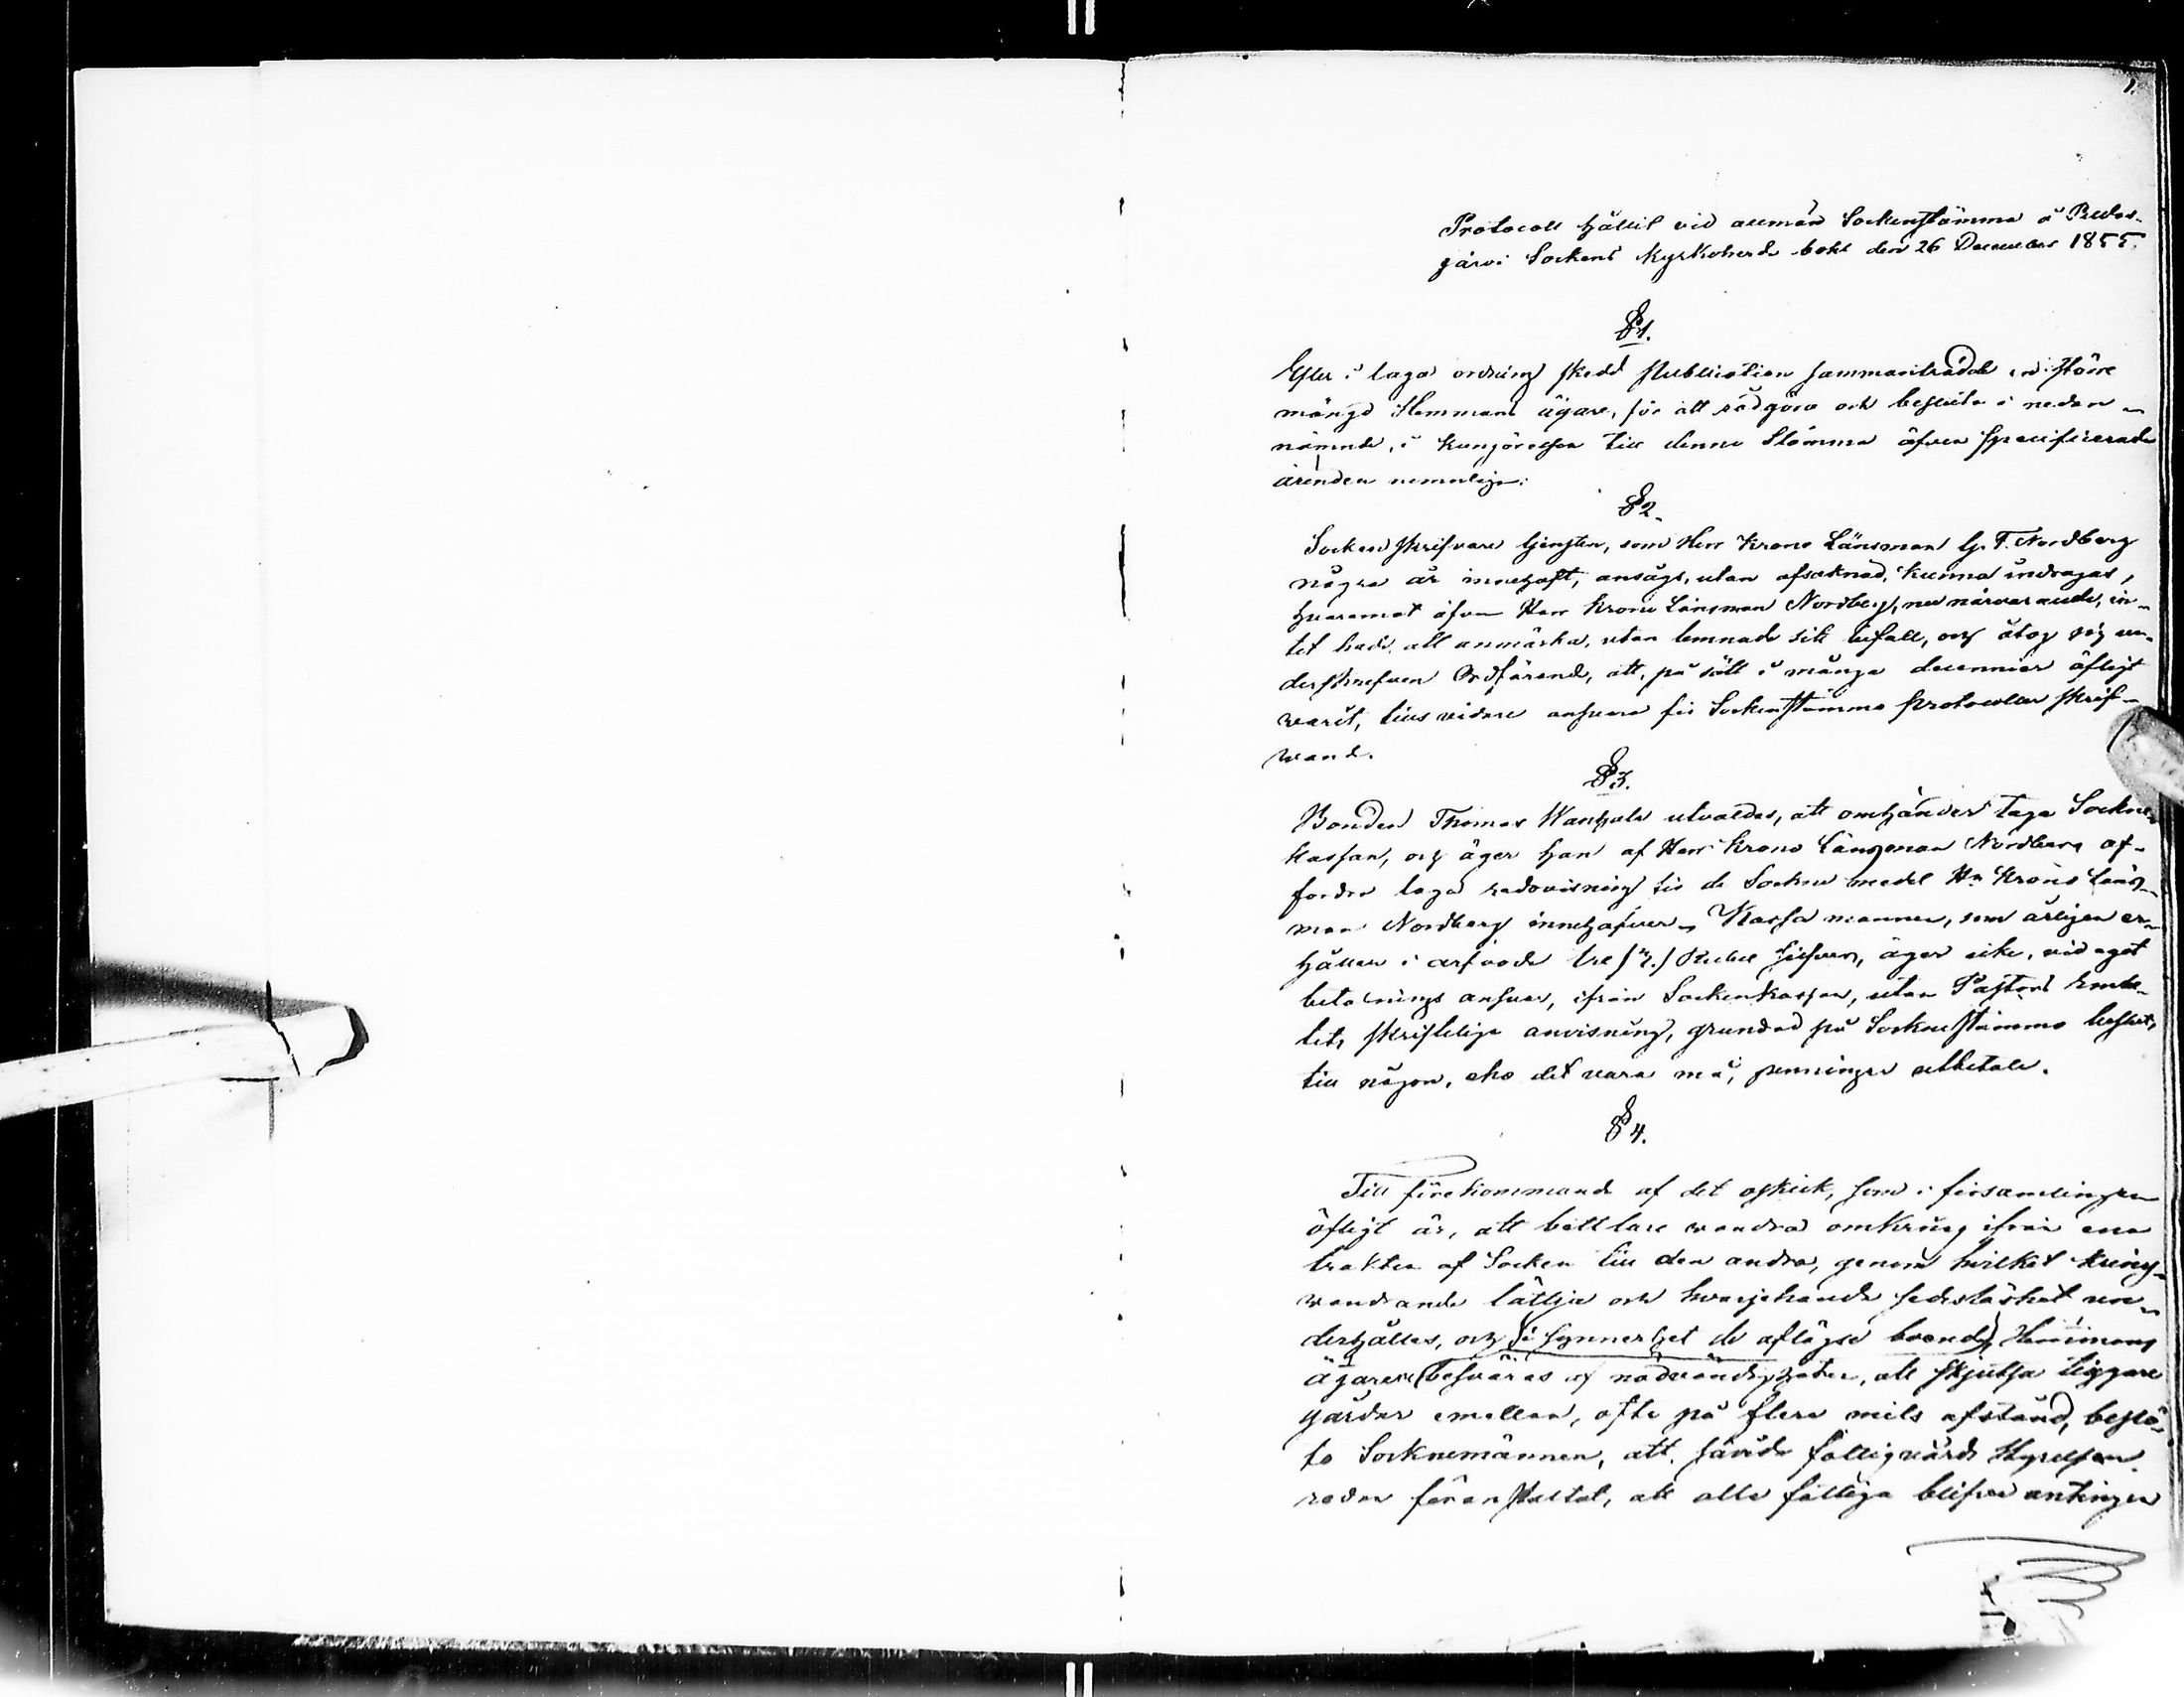 1.
Protocoll hållit vid allmän Sockenstämma å Pudas-
järvi Sockens Kyrkoherde bohl den 26 December 1855.
§ 1.
Efter i laga ordning skedd publication sammanträdde en större
mängd Hemmans ägare, för att rådgöra och besluta i nedan-
nämnde, i kungörelsen till denna Stämma äfven specificerade
ärenden nemnligen:
§ 2.
Sockenskrifvare tjensten, som Herr Krono Länsman G. F. Nordberg
några år innehaft, ansågs, utan afsaknad, kunna indragas,
hvaremot äfven Herr Krono Länsman Nordberg, nu närvarande, in-
tet hade att anmärka, utan lemnade sitt bifall, och åtog sig un-
derskrefven Ordförande, att, på sätt i många decennier öfligt
warit, tills vidare ansvara för Sockenstämmo protocollers skrif-
wande.
§ 3.
Bonden Thomas Wanhala utvaldes, att omhänder taga Sockne
kassan, och äger han af Herr Krono Länsman Nordberg af-
fordra laga redovisning för de Sockne medel Hr Krono Läns-
man Nordberg innehafver. Kassa mannen, som årligen er-
håller i arfvode tre /3./ Rubel Silfver, äger icke, vid eget
betalnings ansvar, ifrån Sockenkassan, utan Pastors Embe-
tets skriftliga anvisning, grundad på Sockenstämmo beslut,
till någon, eho det vara må, penningar utbetala.
§ 4.
Till förekommande af det oskick, som i församlingen
öfligt är, att bettlare wandra omkring ifrån ena
trakten af Socken till den andra, genom hvilket kring-
wandrande lättja och hvarjehanda sedeslöshet un-
derhålles, och i synnerhet de aflägse boende Hemmans
ägarene besväras af nödvändigheten, att skjutsa tiggare
gårdar emellan, ofta på flere mils afstånd, beslö-
to Socknemännen, att, sånvida fattigvårds styrelsen
redan föranstaltat, att alla fattiga blifva antingen